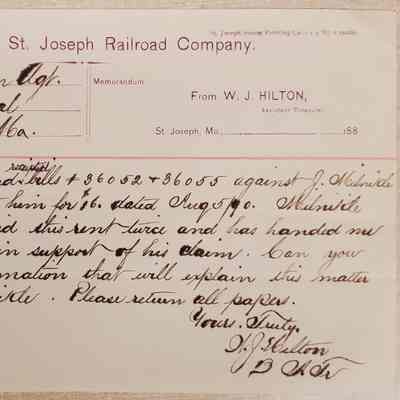 St. Joseph Railroad Company.
Agt.
Memorandum
From W. J. HILTON,
Assistant Treasurer.
Mo.
St. Joseph, Mo., 188
bills # 36052 + 36055 against J.
him for $16. dated Aug 5/90.
this rent twice and has handed me
in support of his claim. Can you
mation that will explain this matter
. Please return all papers.
Yours. Truly.
W. J. Hilton